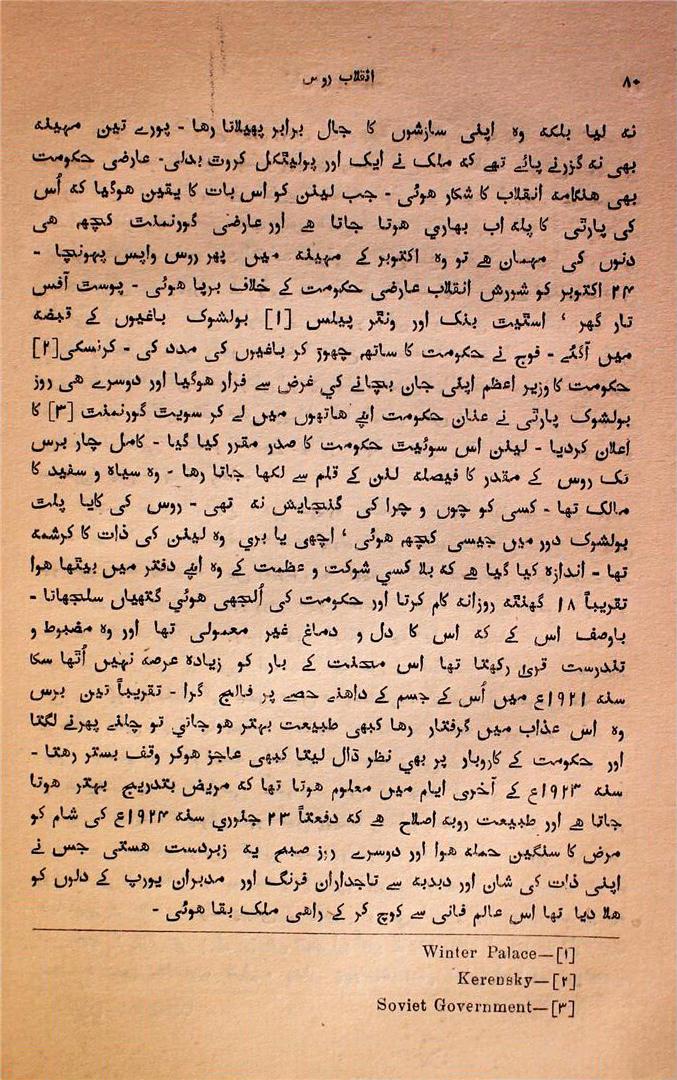 ۸۰
انقلاب روس
نہ لیا بلکہ وہ اپنی سازشوں کا جال برابر پھیلاتا رھا - پورے تین مہینہ
بھی نہ گزرنے پائے تھے کہ ملک نے ایک اور پولیٹکل کروٹ بدلی - عارضی حکومت
بھی ھنگامہ انقلاب کا شکار ھوئی - جب لینن کو اس بات کا یقین ھوگیا کہ اُس
کی پارٹی کا پلہ اب بھاری ھوتا جاتا ھے اور عارضی گورنمنٹ کچھہ ھی
دنوں کی مہمان ھے تو وہ اکتوبر کے مہینہ میں پھر روس واپس پہونچا -
۲۴ اکتوبر کو شورش انقلاب عارضی حکومت کے خلاف برپا ھوئی - پوسٹ آفس
تار گھر ' اسٹیٹ بنک اور ونٹر پیلس [۱] بولشوک باغیوں کے قبضہ
میں آگئے - فوج نے حکومت کا ساتھہ چھوڑ کر باغیوں کی مدد کی - کرنسکی [۲]
حکومت کا وزیر اعظم اپنی جان بچانے کی غرض سے فرار ھوگیا اور دوسرے ھی روز
بولشوک پارٹی نے عنان حکومت اپنے ھاتھوں میں لے کر سویٹ گورنمنٹ [۳] کا
اعلان کردیا - لینن اس سوئیٹ حکومت کا صدر مقرر کیا گیا - کامل چار برس
تک روس کے مقدر کا فیصلہ لنن کے قلم سے لکھا جاتا رھا - وہ سیاہ و سفید کا
مالک تھا - کسی کو چوں و چرا کی گنجایش نہ تھی - روس کی کایا پلٹ
بولشوک دور میں جیسی کچھہ ھوئی ' اچھی یا بری وہ لینن کی ذات کا کرشمہ
تھا - اندازہ کیا گیا ھے کہ بلا کسی شوکت و عظمت کے وہ اپنے دفتر میں بیٹھا ھوا
تقریباً ۱۸ گھنٹہ روزانہ کام کرتا اور حکومت کی اُلجھی ھوئی گتھیاں سلجھاتا -
باوصف اس کے کہ اس کا دل و دماغ غیر معمولی تھا اور وہ مضبوط و
تندرست قوی رکھتا تھا اس محنت کے بار کو زیادہ عرصہ نہیں اُٹھا سکا
سنہ ۱۹۲۱ع میں اُس کے جسم کے داھنے حصے پر فالج گرا - تقریباً تین برس
وہ اس عذاب میں گرفتار رھا کبھی طبیعت بہتر ھو جاتی تو چلنے پھرنے لگتا
اور حکومت کے کاروبار پر بھی نظر ڈال لیتا کبھی عاجز ھوکر وقف بستر رھتا -
سنہ ۱۹۲۳ع کے آخری ایام میں معلوم ھوتا تھا کہ مریض بتدریج بہتر ھوتا
جاتا ھے اور طبیعت روبہ اصلاح ھے کہ دفعتاً ۲۳ جنوری سنہ ۱۹۲۴ع کی شام کو
مرض کا سنگین حملہ ھوا اور دوسرے روز صبح یہ زبردست ھستی جس نے
اپنی ذات کی شان اور دبدبہ سے تاجداران فرنگ اور مدبران یورپ کے دلوں کو
ھلا دیا تھا اس عالم فانی سے کوچ کر کے راھی ملک بقا ھوئی -
Winter Palace—[۱]
Kerensky—[۲]
Soviet Government—[۳]